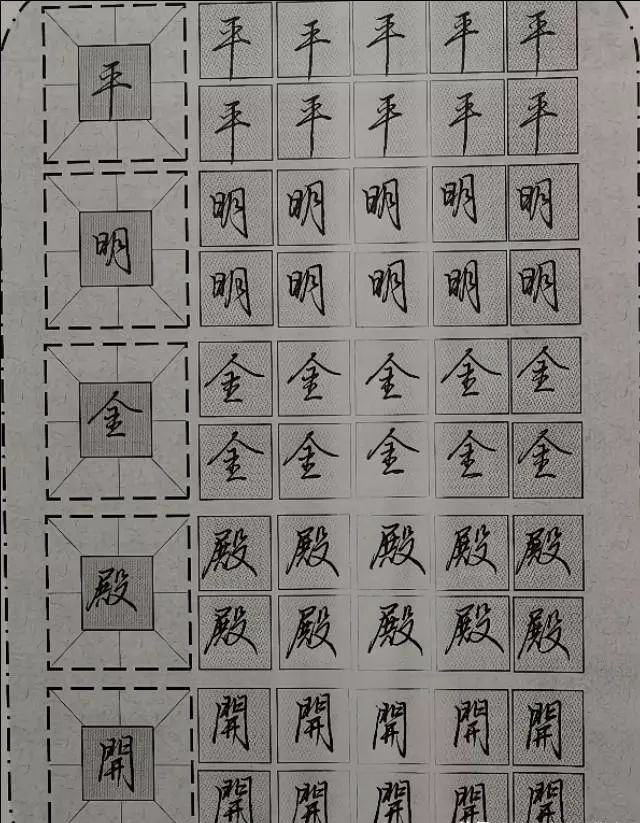 平 平 平 平 平 平
平 平 平 平 平
明 明 明 明 明 明
明 明 明 明 明
金 金 金 金 金 金
金 金 金 金 金
殿 殿 殿 殿 殿 殿
殿 殿 殿 殿 殿
開 開 開 開 開 開
開 開 開 開 開